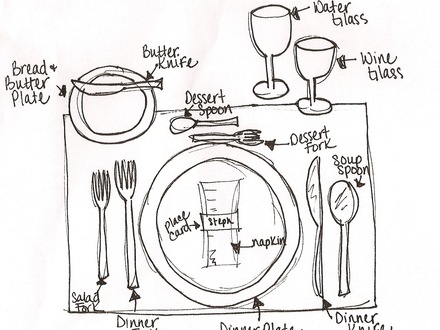 Water
Glass
Wine
Glass
Butter
Knife
Bread &
Butter
Plate
Dessert
Spoon
Dessert
Fork
Soup
Spoon
Place
Card
Steph
napkin
Salad
Fork
Dinner
Dinner Plate
Dinner
Knife